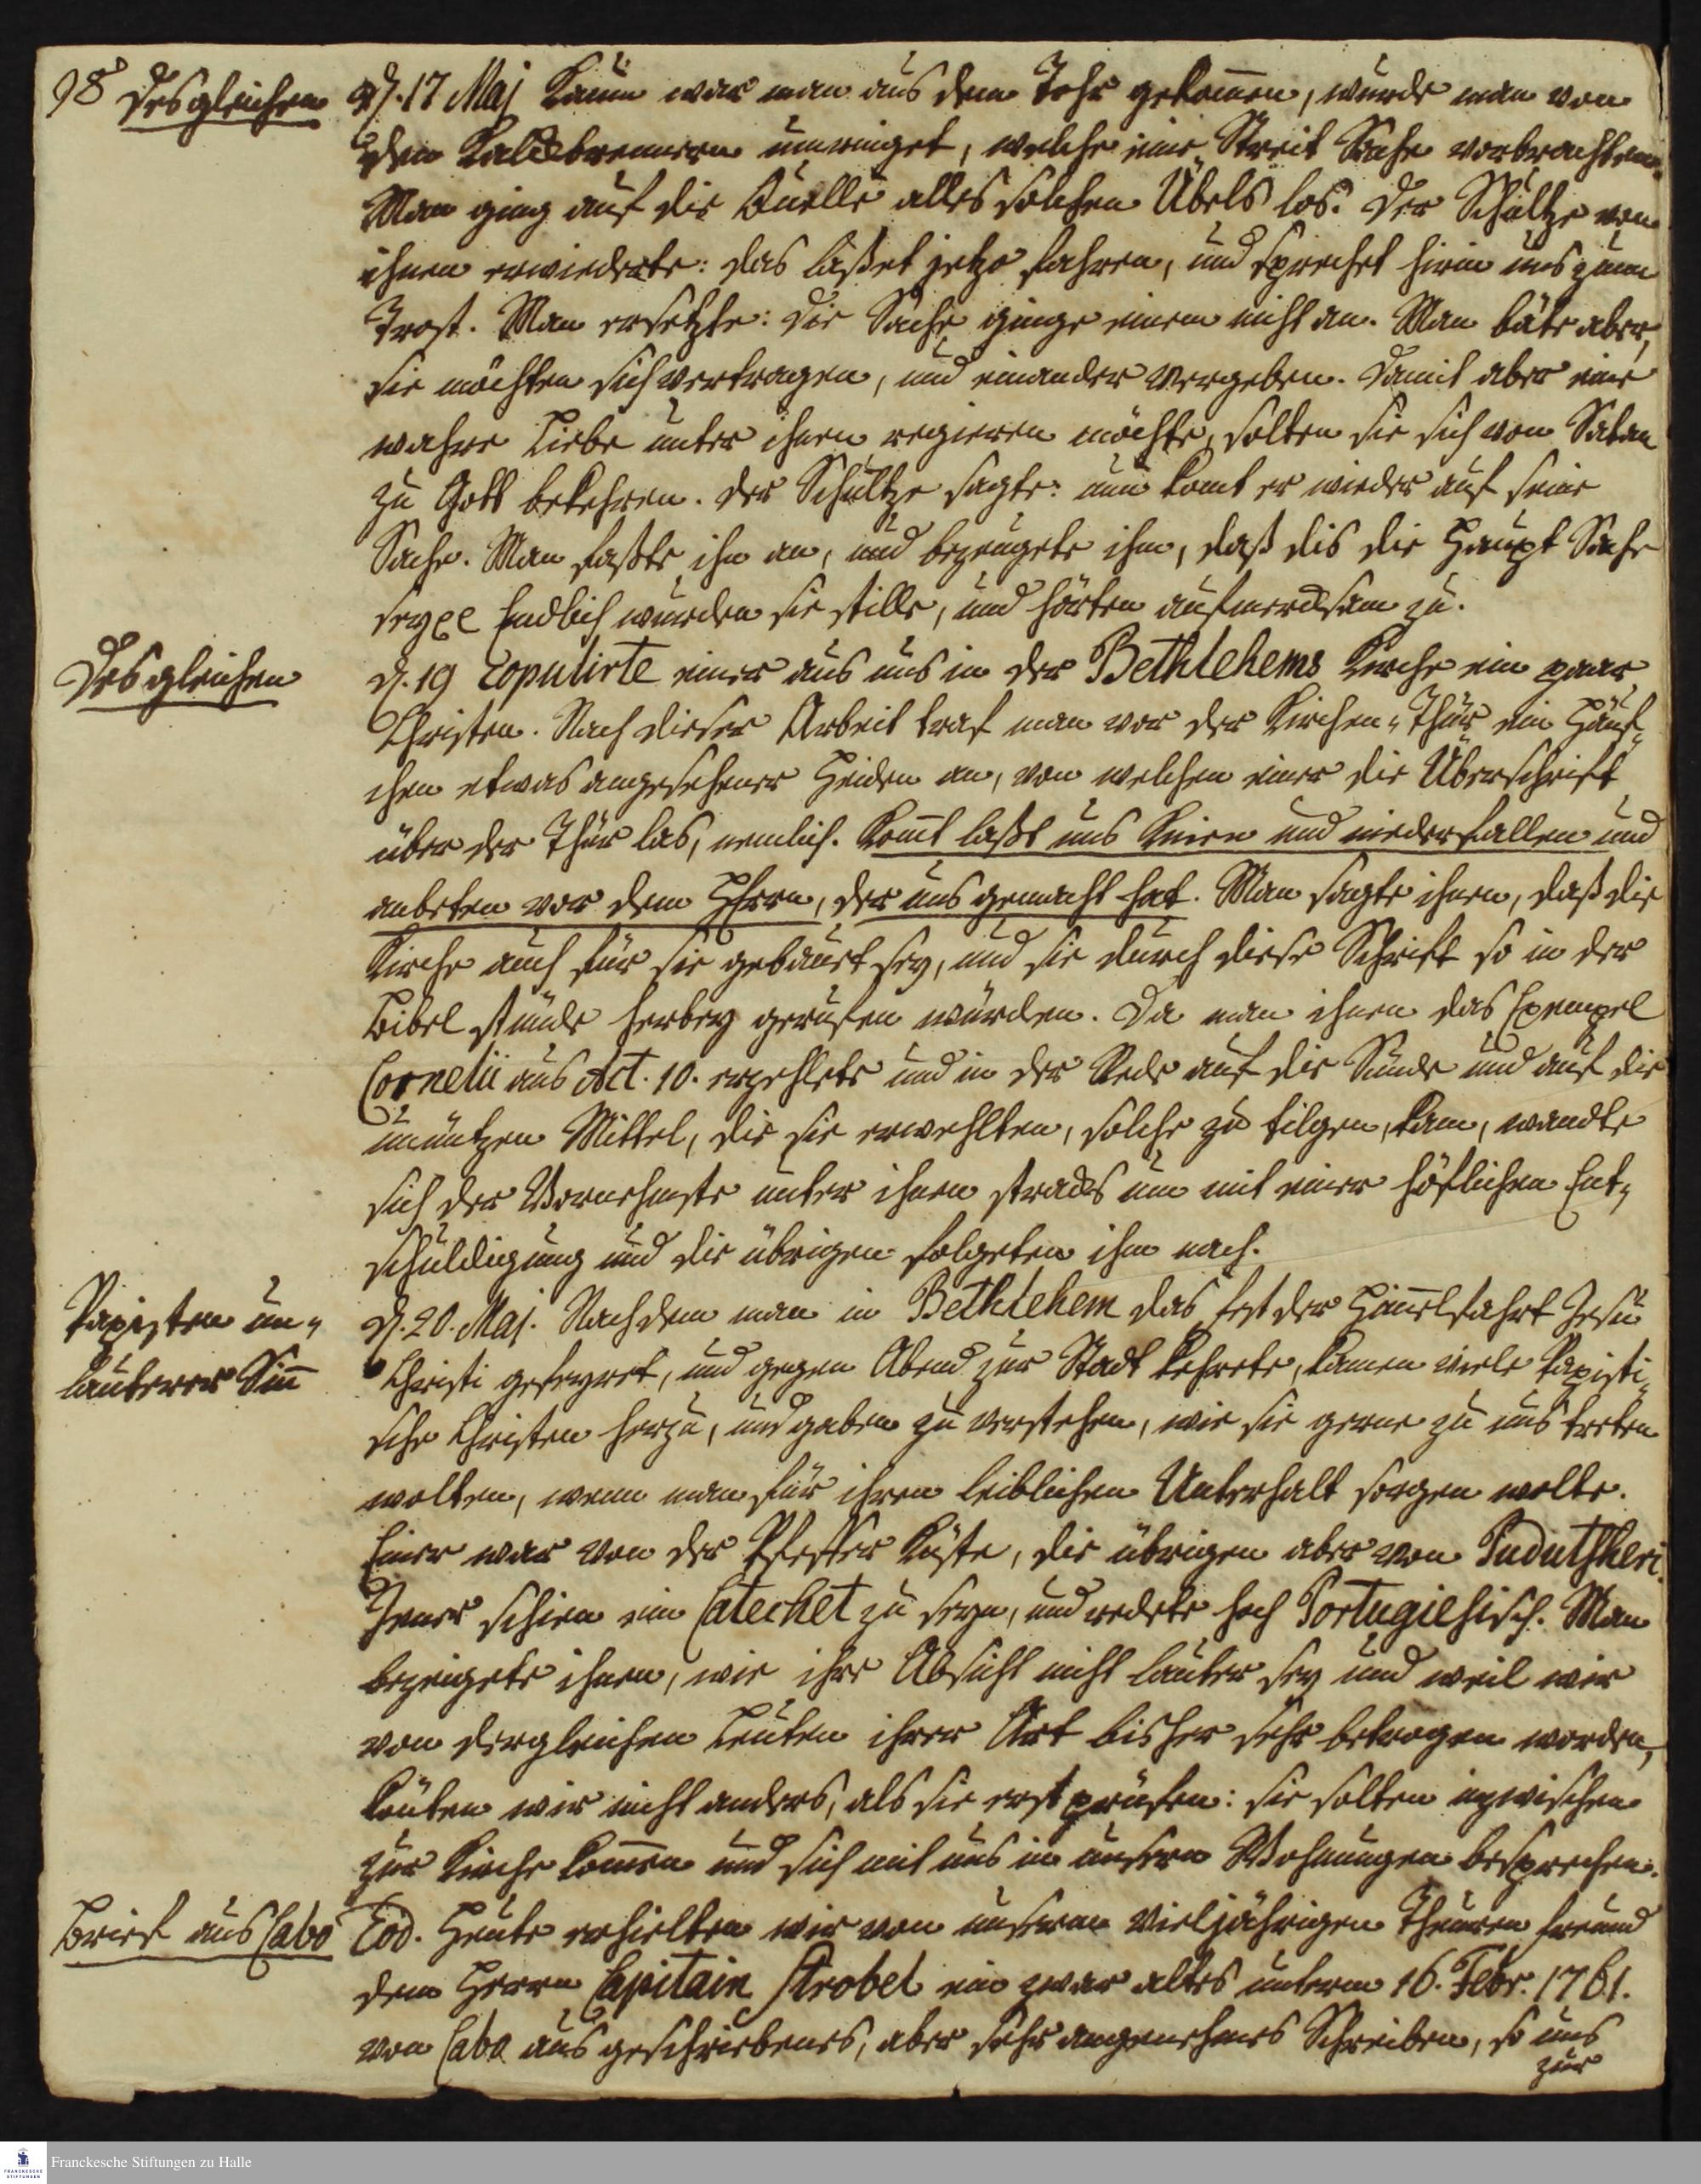 98 Desgleichen
D. 17 Maj Kaum war man aus dem Tohr gekom̄en, wurde man von
den Kalckbrennern umringet, welche eine Streit Sache vorbrachten.
Man ging auf die Quelle alles solchen Übels los. Der Schultze von
ihnen erwiederte: das laßet jetzo fahren, und sprechet hierin uns zum
Trost. Man ersetzte: Die Sache ginge einem nicht an. Man bäte aber,
sie möchten sich vertragen, und einander vergeben. Damit aber eine
wahre Liebe unter ihnen regieren möchte, solten sie sich von Satan
zu Gott bekehren. Der Schultze sagte: nun komt er wieder auf seine
Sache. Man faßte ihn an, und bezeugete ihm, daß dis die Haupt Sache
sey Endlich wurden sie stille, und hörten aufmercksam zu.
Desgleichen
D. 19 copulirte einer aus uns in der Bethlehems Kirche ein paar
Christen. Nach dieser Arbeit traf man vor der Kirchen-Thür ein Häuf-
chen etwas angesehener Heiden an, von welchen einer die Überschrift
über der Thür las, nemlich. Kom̄t laßt uns knien und niederfallen und
anbeten vor dem HErrn, der uns gemacht hat. Man sagte ihnen, daß die
Kirche auch für sie gebauet sey, und sie durch diese Schrift so in der
Bibel stünde herbey gerufen würden. Da man ihnen das Exempel
Cornelii aus Act. 10. erzehlete und in der Rede auf die Sünde und auf die
unnützen Mittel, die sie erwehlten, solche zu tilgen, kam, wandte
sich der Vornehmste unter ihnen stracks um mit einer höflichen Ent-
schuldigung und die übrigen folgeten ihm nach.
Papisten un-
lauterer Sin̄
D. 20. Maj. Nachdem man in Bethlehem das Fest der Him̄elfahrt Jesu
Christi gefeyret, und gegen Abend zur Stadt kehrete, kamen viele Papisti-
sche Christen herzu, und gaben zu verstehen, wie sie gerne zu uns treten
wolten, wenn man für ihren leiblichen Unterhalt sorgen wolte.
Einer war von der Pfeffer Küste, die übrigen aber von Pudutscheri.
Jener schien ein Catechet zu seyn, und redete hoch Portugiesisch. Man
bezeigete ihnen, wie ihre Absicht nicht lauter sey und weil wir
von dergleichen Leuten ihrer Art bisher sehr betrogen worden,
könten wir nicht anders, als sie erst prüfen: sie solten inzwischen
zur Kirche kom̄en und sich mit uns in unsern Wohnungen besprechen.
Brief aus Cabo
Eod. Heute erhielten wir von unserm vieljährigen Theuren Freund
dem Herrn Capitain Strobel ein zwar altes unterm 16. Febr. 1761.
von Cabo aus geschriebenes, aber sehr angenehmes Schreiben, so uns
zur
Franckesche Stiftungen zu Halle